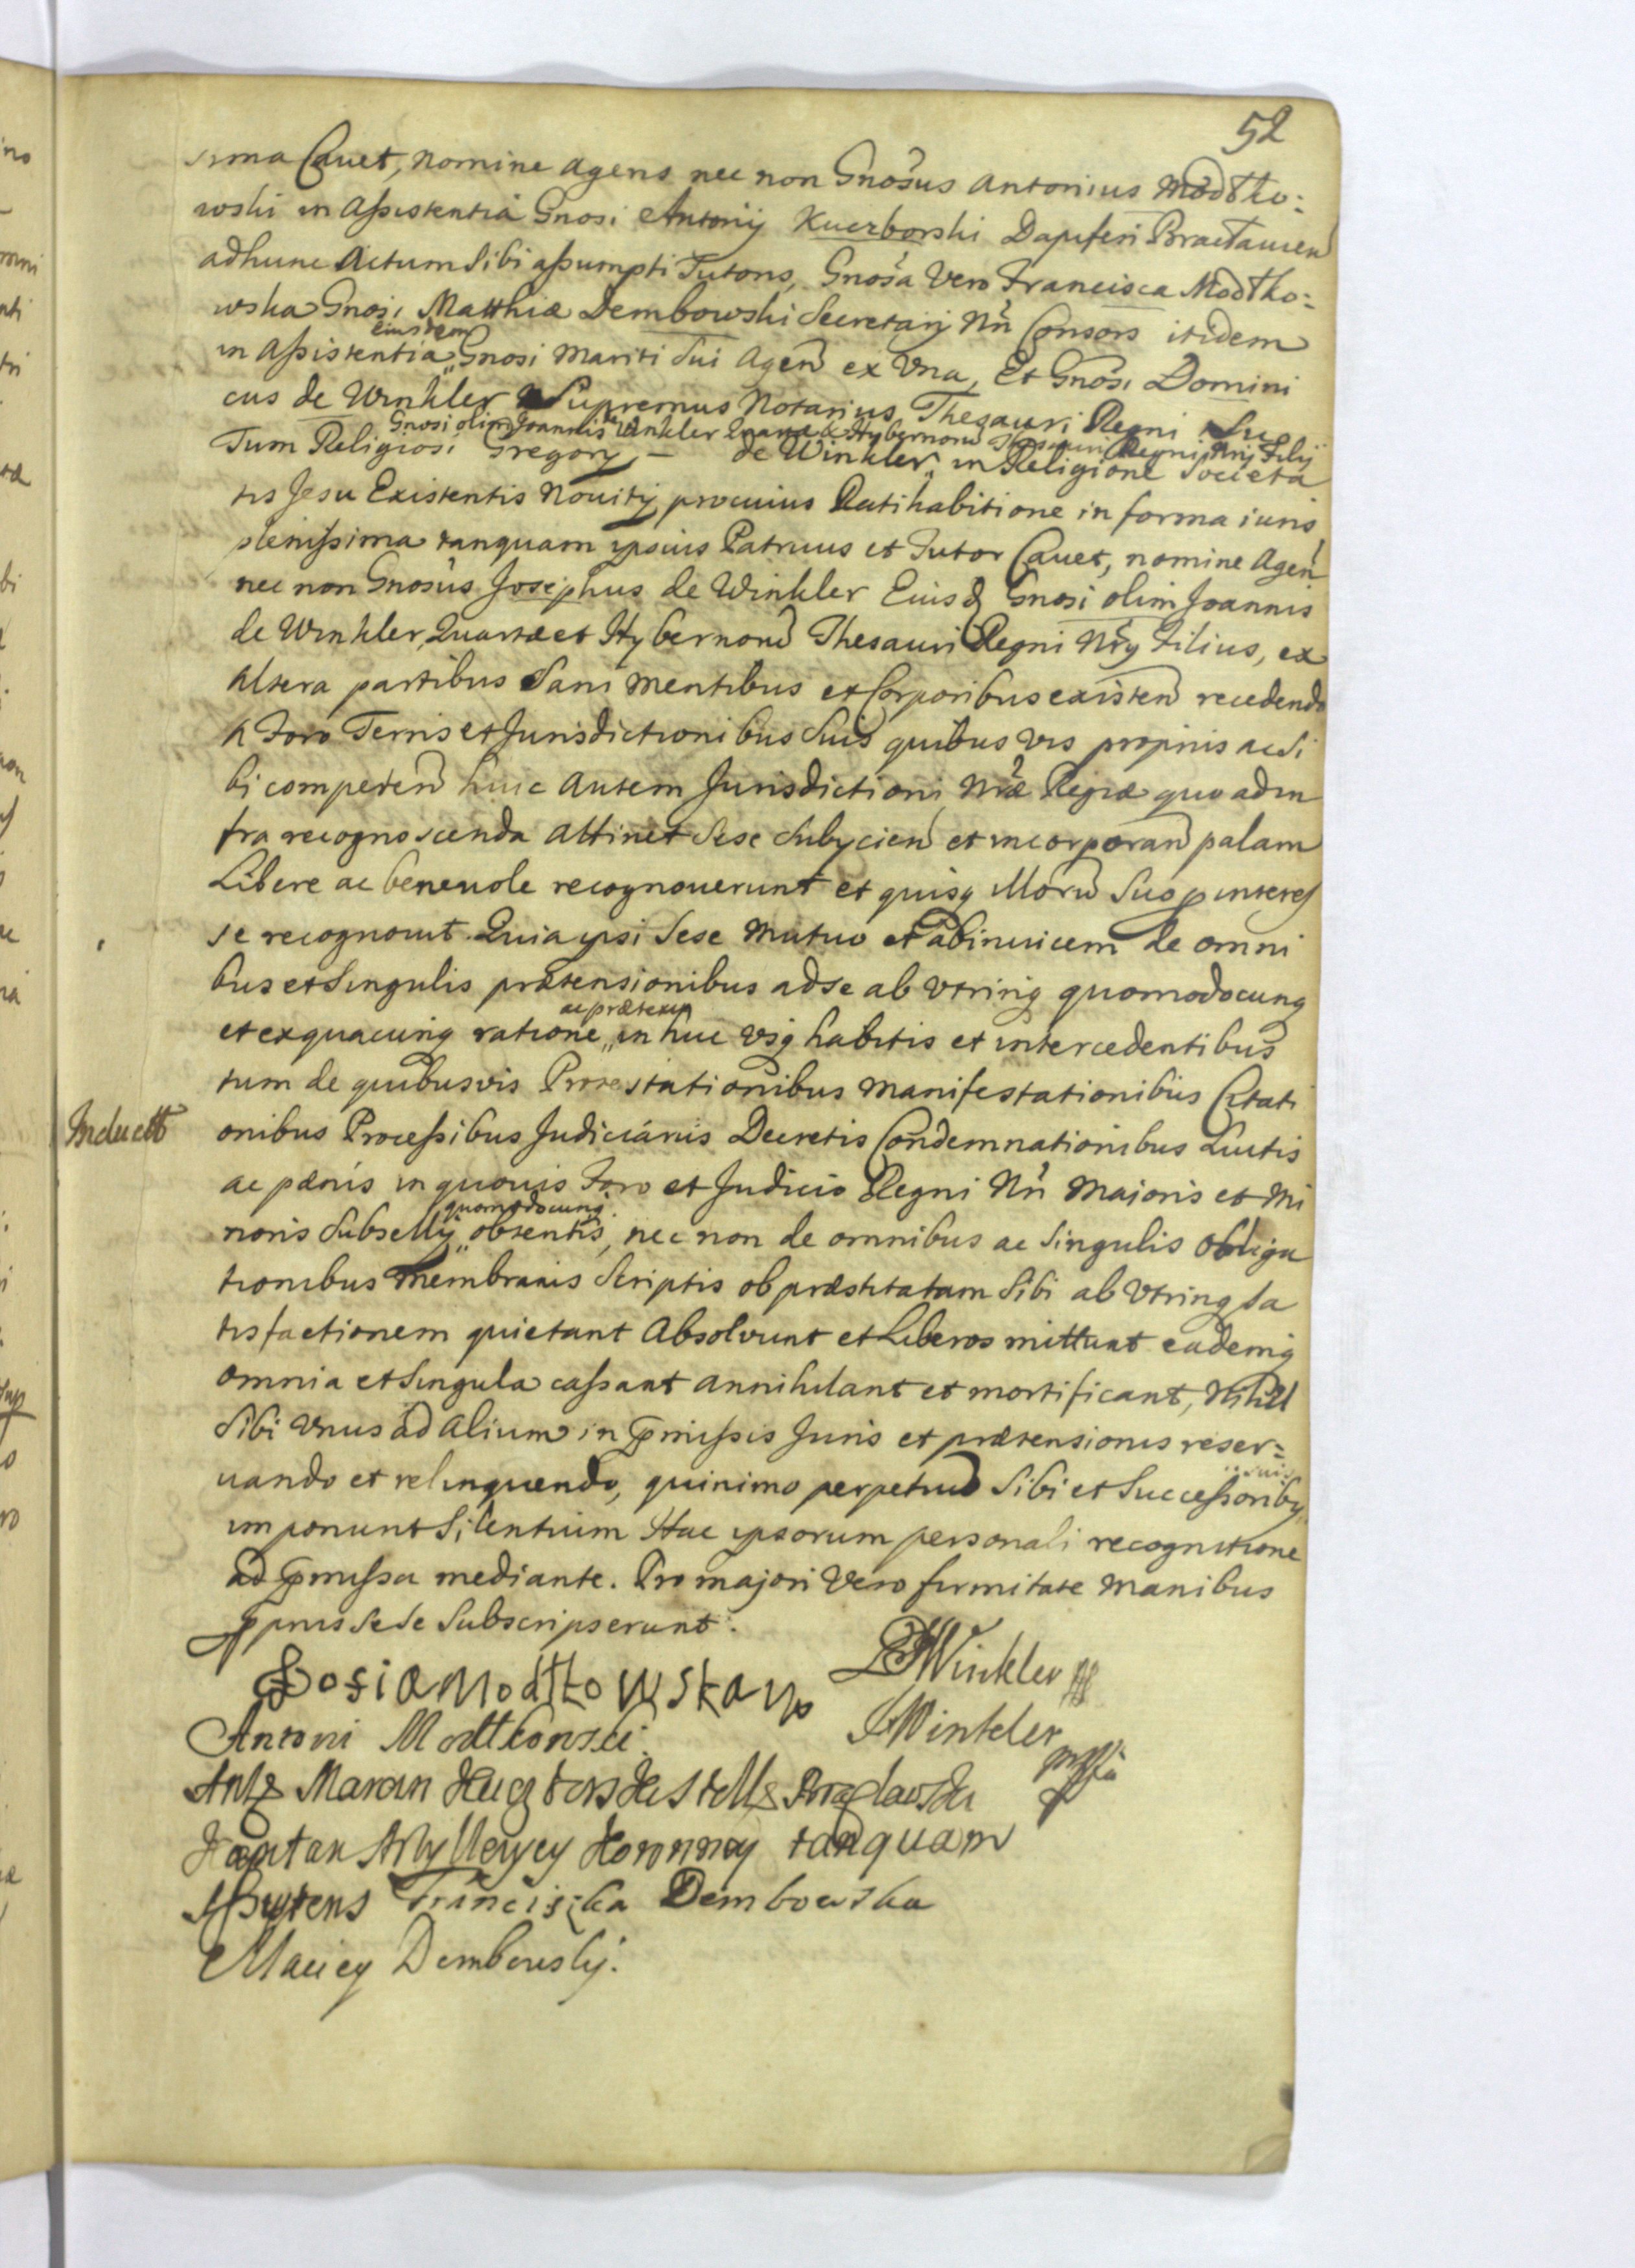 52
sima Cauet, nomine agens nec non Gnosus Antonius Modtko:
wski in assistentia Gnosi Antonij Kuczborski Dapiferi Braclauien
adhunc Actum Sibi assumpti Tutoris, Gnosa Vero Francisca Modtko:
wska Gnosi Matthiæ Dembowski Secretarij Nri Consors itidem
eiusdem
in assistentia Gnosi Mariti Sui Agen ex Vna, Et Gnosi Domini
cus de Winkler Supremus Notarius Thesauri Regni Suo
Gnosi olim Joannis de Winkler Quartæ & Hybernorum Thesauri Regni Nrij Filij
Tum Religiosi Gregorij – de Winkler in Religione Societa
tis Jesu Existentis Nouitij, pro cuius Ratihabitione in forma iuris
plenissima tanquam ipsius Patruus et Tutor Cauet, nomine Agen
nec non Gnosus Josephus de Winkler Eiusd Gnosi olim Joannis
de Winkler, Quartæ et Hybernoru Thesauri Regni Nrij Filius, ex
Altera partibus Sani Mentibus et Corporibus existen recedendo
A Foro Terris et Jurisdictionibus Suis quibus vis proprijs ac Si
bi competen huic Autem Jurisdictioni Nræ Regiæ quo ad in
fra recognoscenda Attinet Sese Subijcien et incorporan palam
Libere ac beneuole recognouerunt et quisq Illoru Suo p interes
se recognouit. Quia ipsi Sese Mutuo et abinuicem de omni
bus et Singulis prætensionibus ad se ab Vtrinq quomodocunq
ac prætextu
et ex quacunq ratione in huc Vsq habitis et intercedentibus
tum de quibusvis Protestationibus Manifestationibus Citati
Inductt
onibus Processibus Judiciarijs Decretis Condemnationibus Luitis
ac pænis in quouis Foro et Judicio Regni Nri Majoris et Mi
quomodocunq
noris Subsellij obtentis, nec non de omnibus ac Singulis Obliga
tionibus Membranis Scriptis ob præstitatam Sibi ab Vtrinq Sa
tisfactionem quietant Absolvunt et Liberos mittunt eademq
Omnia et Singula cassant Annihilant et mortificant, Nihil
Sibi Vnus ad Alium in pmissis Juris et prætensionis reser:
uando et relinquendo, quinimo perpetuu Sibi et Successoribq
suis
imponunt Silentium Hac ipsorum personali recognitione
ad pmissa mediante. Pro majori Vero firmitate Manibus
pprijs Sese Subscripserunt.
Zofia Modtkowska mp
DWinkler mp
Antoni Modtkowski
JWinkler mppria
Antoni Marcin Kuczborski Stolnik Bracławski
Kapitan Artylleryey Koronney tanquam
Assistens Franciszka Dembowska
Maciey Dembowskij.